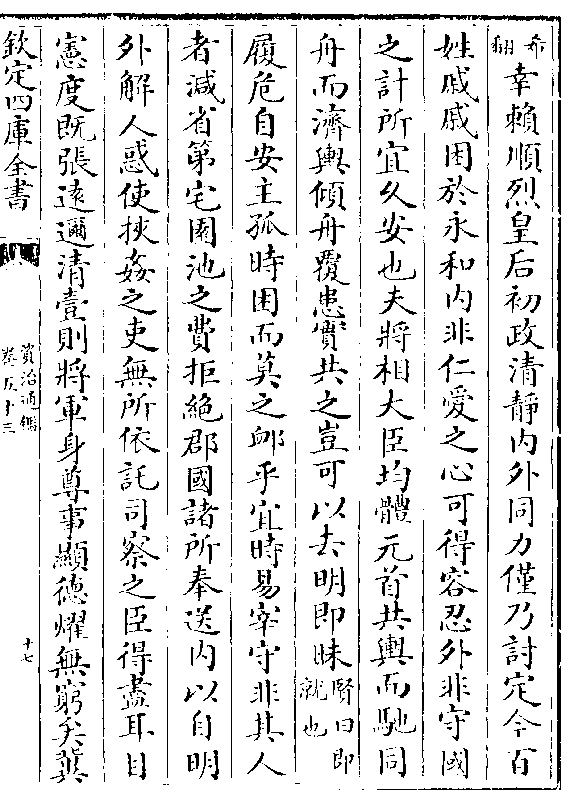 希翻幸賴順烈皇后初政清靜内外同力僅乃討定今百
姓戚戚困於永和内非仁愛之心可得容忍外非守國
之計所宜久安也夫將相大臣均體元首共輿而馳同
舟而濟輿傾舟覆患實共之豈可以去明即昧賢曰即就也
履危自安主孤時困而莫之卹乎宜時易宰守非其人
者減省第宅園池之費拒絶郡國諸所奉送内以自明
外解人惑使挾姦之吏無所依託司察之臣得盡耳目
憲度既張逺邇清壹則將軍身尊事顯德燿無窮矣冀
欽定四庫全書
資治通鑑
卷五十三
十七